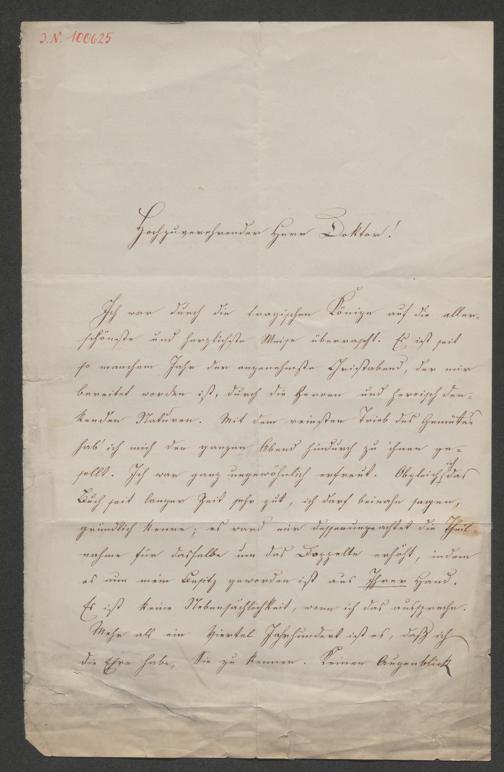 J.N. 100625
Hochzuverehrender Herr Doktor!
Ich war durch die tragischen Könige auf die aller-
schönste und herzlichste Weise überrascht. Es ist seit
so manchem Jahr der angenehmste Christabend, der mir
bereitet worden ist, durch die Heroen und heroisch den-
kenden Naturen. Mit dem reinsten Trieb des Gemütes
hab ich mich den ganzen Abend hindurch zu ihnen ge-
sellt. Ich war ganz ungewöhnlich erfreut. Obgleich ich das
Buch seit langer Zeit sehr gut, ich darf beinahe sagen,
gründlich kenne; es ward mir dessenungeachtet die Theil-
nahme für dasselbe um das Doppelte erhöht, indem
es nun mein Besitz geworden ist aus Ihrer Hand.
Es ist keine Nebensächlichkeit, wenn ich das ausspreche.
Mehr als ein Viertel Jahrhundert ist es, daß ich
die Ehre habe, Sie zu kennen. Keinen Augenblick